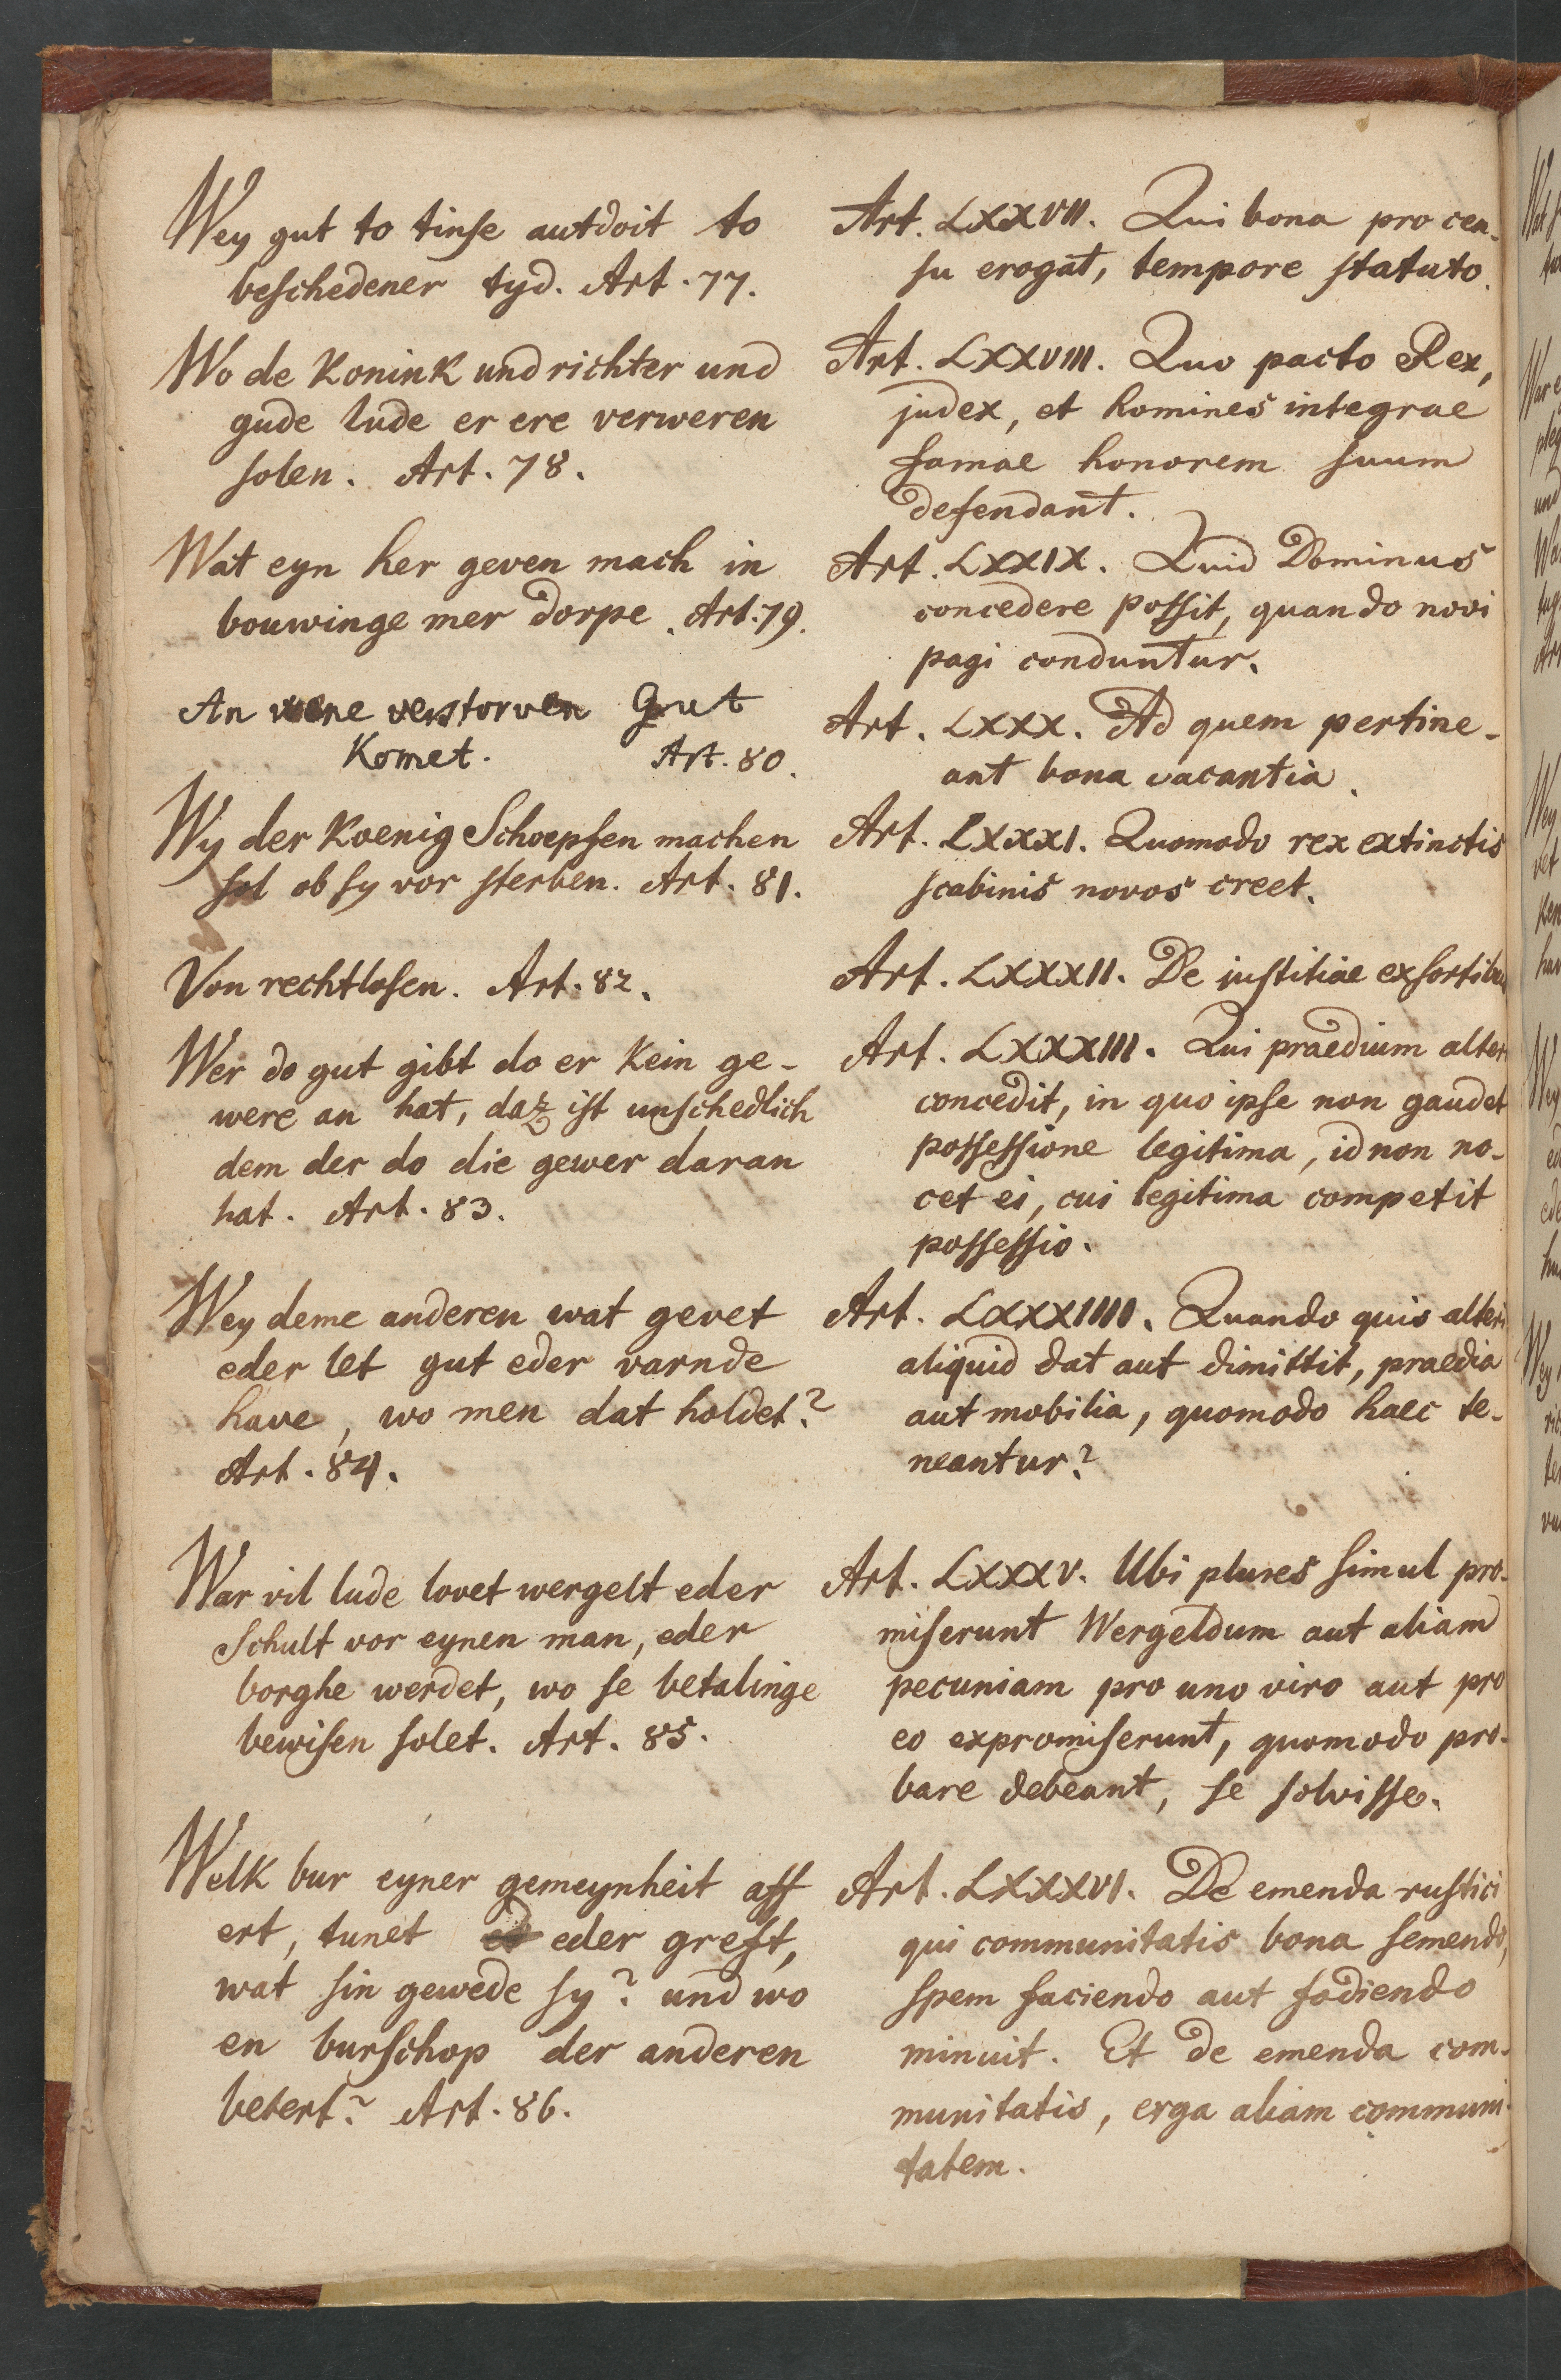 Wey gut to tinse autdoit to
beschedener tyd. Art. 77.
Wo de Konink und richter und
gude lude er ere verweren
solen. Art. 78.
Wat eyn her geven mach in
bouwinge mer dorpe. Art. 79.
An wene verstorven Gut
Komet. Art. 80.
Wy der Koenig Schoepfen machen
sol ob sy vor sterben. Art. 81.
Von rechtlosen. Art. 82.
Wer do gut gibt do er Kein ge-
were an hat, daz ist unschedlich
dem der do die gewer daran
hat. Art. 83.
Wey deme anderen wat gevet
eder let gut eder varnde
have, wo men dat holdet?
Art. 84.
War vil lude lovet wergelt eder
Schult vor eynen man, eder
borghe werdet, wo se betalinge
bewisen solet. Art. 85.
Welk bur eyner gemeynheit aff
ert, tunet eder greft,
wat sin gewede sy? und wo
en burschop der anderen
betert? Art. 86.
Art. LXXVII. Qui bona pro cen-
su erogat, tempore statuto.
Art. LXXVIII. Quo pacto Rex,
judex, et homines integrae
famae honorem suum
defendant.
Art. LXXIX. Quid Dominus
concedere possit, quando novi
pagi conduntur.
Art. LXXX. Ad quem pertine-
ant bona vacantia.
Art. LXXXI. Quomodo rex extinctis
scabinis novos creet.
Art. LXXXII. De iustitiae exsortibus
Art. LXXXIII. Qui praedium alteri
concedit, in quo ipse non gaudet
possessione legitima, id non no-
cet ei, cui legitima competit
possessio.
Art. LXXXIIII. Quando quis alteri
aliquid dat aut dimittit, praedia
aut mobilia, quomodo haec te-
neantur?
Art. LXXXV. Ubi plures simul pro-
miserunt Wergeldum aut aliam
pecuniam pro uno viro aut pro
eo expromiserunt, quomodo pro-
bare debeant, se solvisse.
Art. LXXXVI. De emenda rustici
qui communitatis bona semendo,
spem faciendo aut fodiendo
minuit. Et de emenda com-
munitatis, erga aliam communi-
tatem.